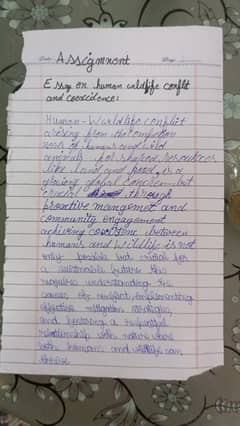 Date:
Day:
Assignment
Essay on human wildlife conflit
and coexcidence:
Human-Wardlife conflict
arising from the
of humans and wild
animals for shared resources
like land and food, is a
global concern but
crucial through
proactive mangement and
community engagement
achiving between
humans and wildlife is not
only possible but critical for
a sustainable future this
requires understanding the
causes of conflict implementing
effective mitigation strategies,
and fostering a respectful
relationship with nature where
both humans and wildlife can
thrive